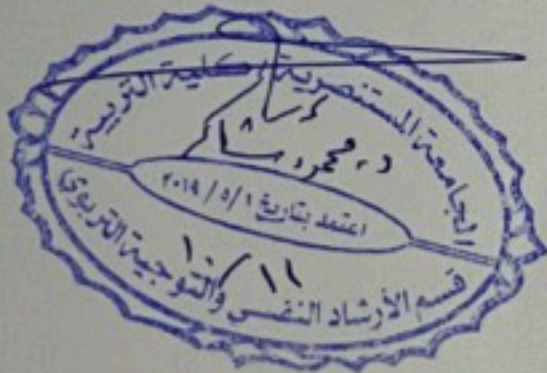 الجامعة المستنصرية / كلية التربية
د. محمود شاكر
اعتمد بتاريخ ٢٠١٩/٥/١
١٠/١١
قسم الأرشاد النفسي والتوجية التربوي